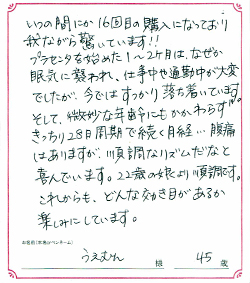 いつの間にか16回目の購入になっており
我ながら驚いています!!
プラセンタを始めた1~2ヶ月は、なぜか
眠気に襲われ、仕事中や通勤中が大変
でしたが、今ではすっかり落ち着いています。
そして、微妙な年齢にもかかわらず
きっちり28日周期で続く月経…腹痛
はありますが、順調なリズムだなと
喜んでいます。22歳の娘より順調です。
これからも、どんな効き目があるか
楽しみにしています。
お名前(本名orペンネーム)
うえむん 様 45 歳